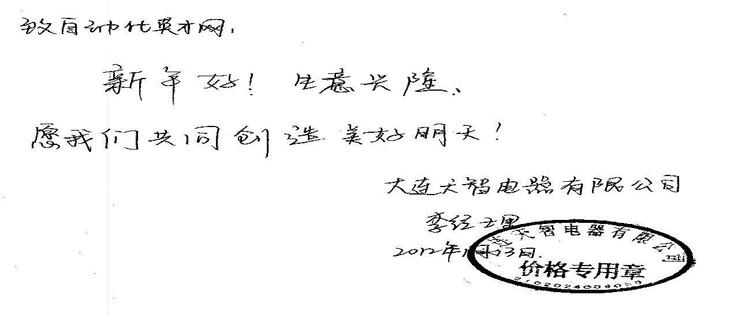 致自动化英才网，
新年好！生意兴隆、
愿我们共同创造美好明天！
大连天智电器有限公司
李经理
2012年1月13日.
大连天智电器有限公司
价格专用章